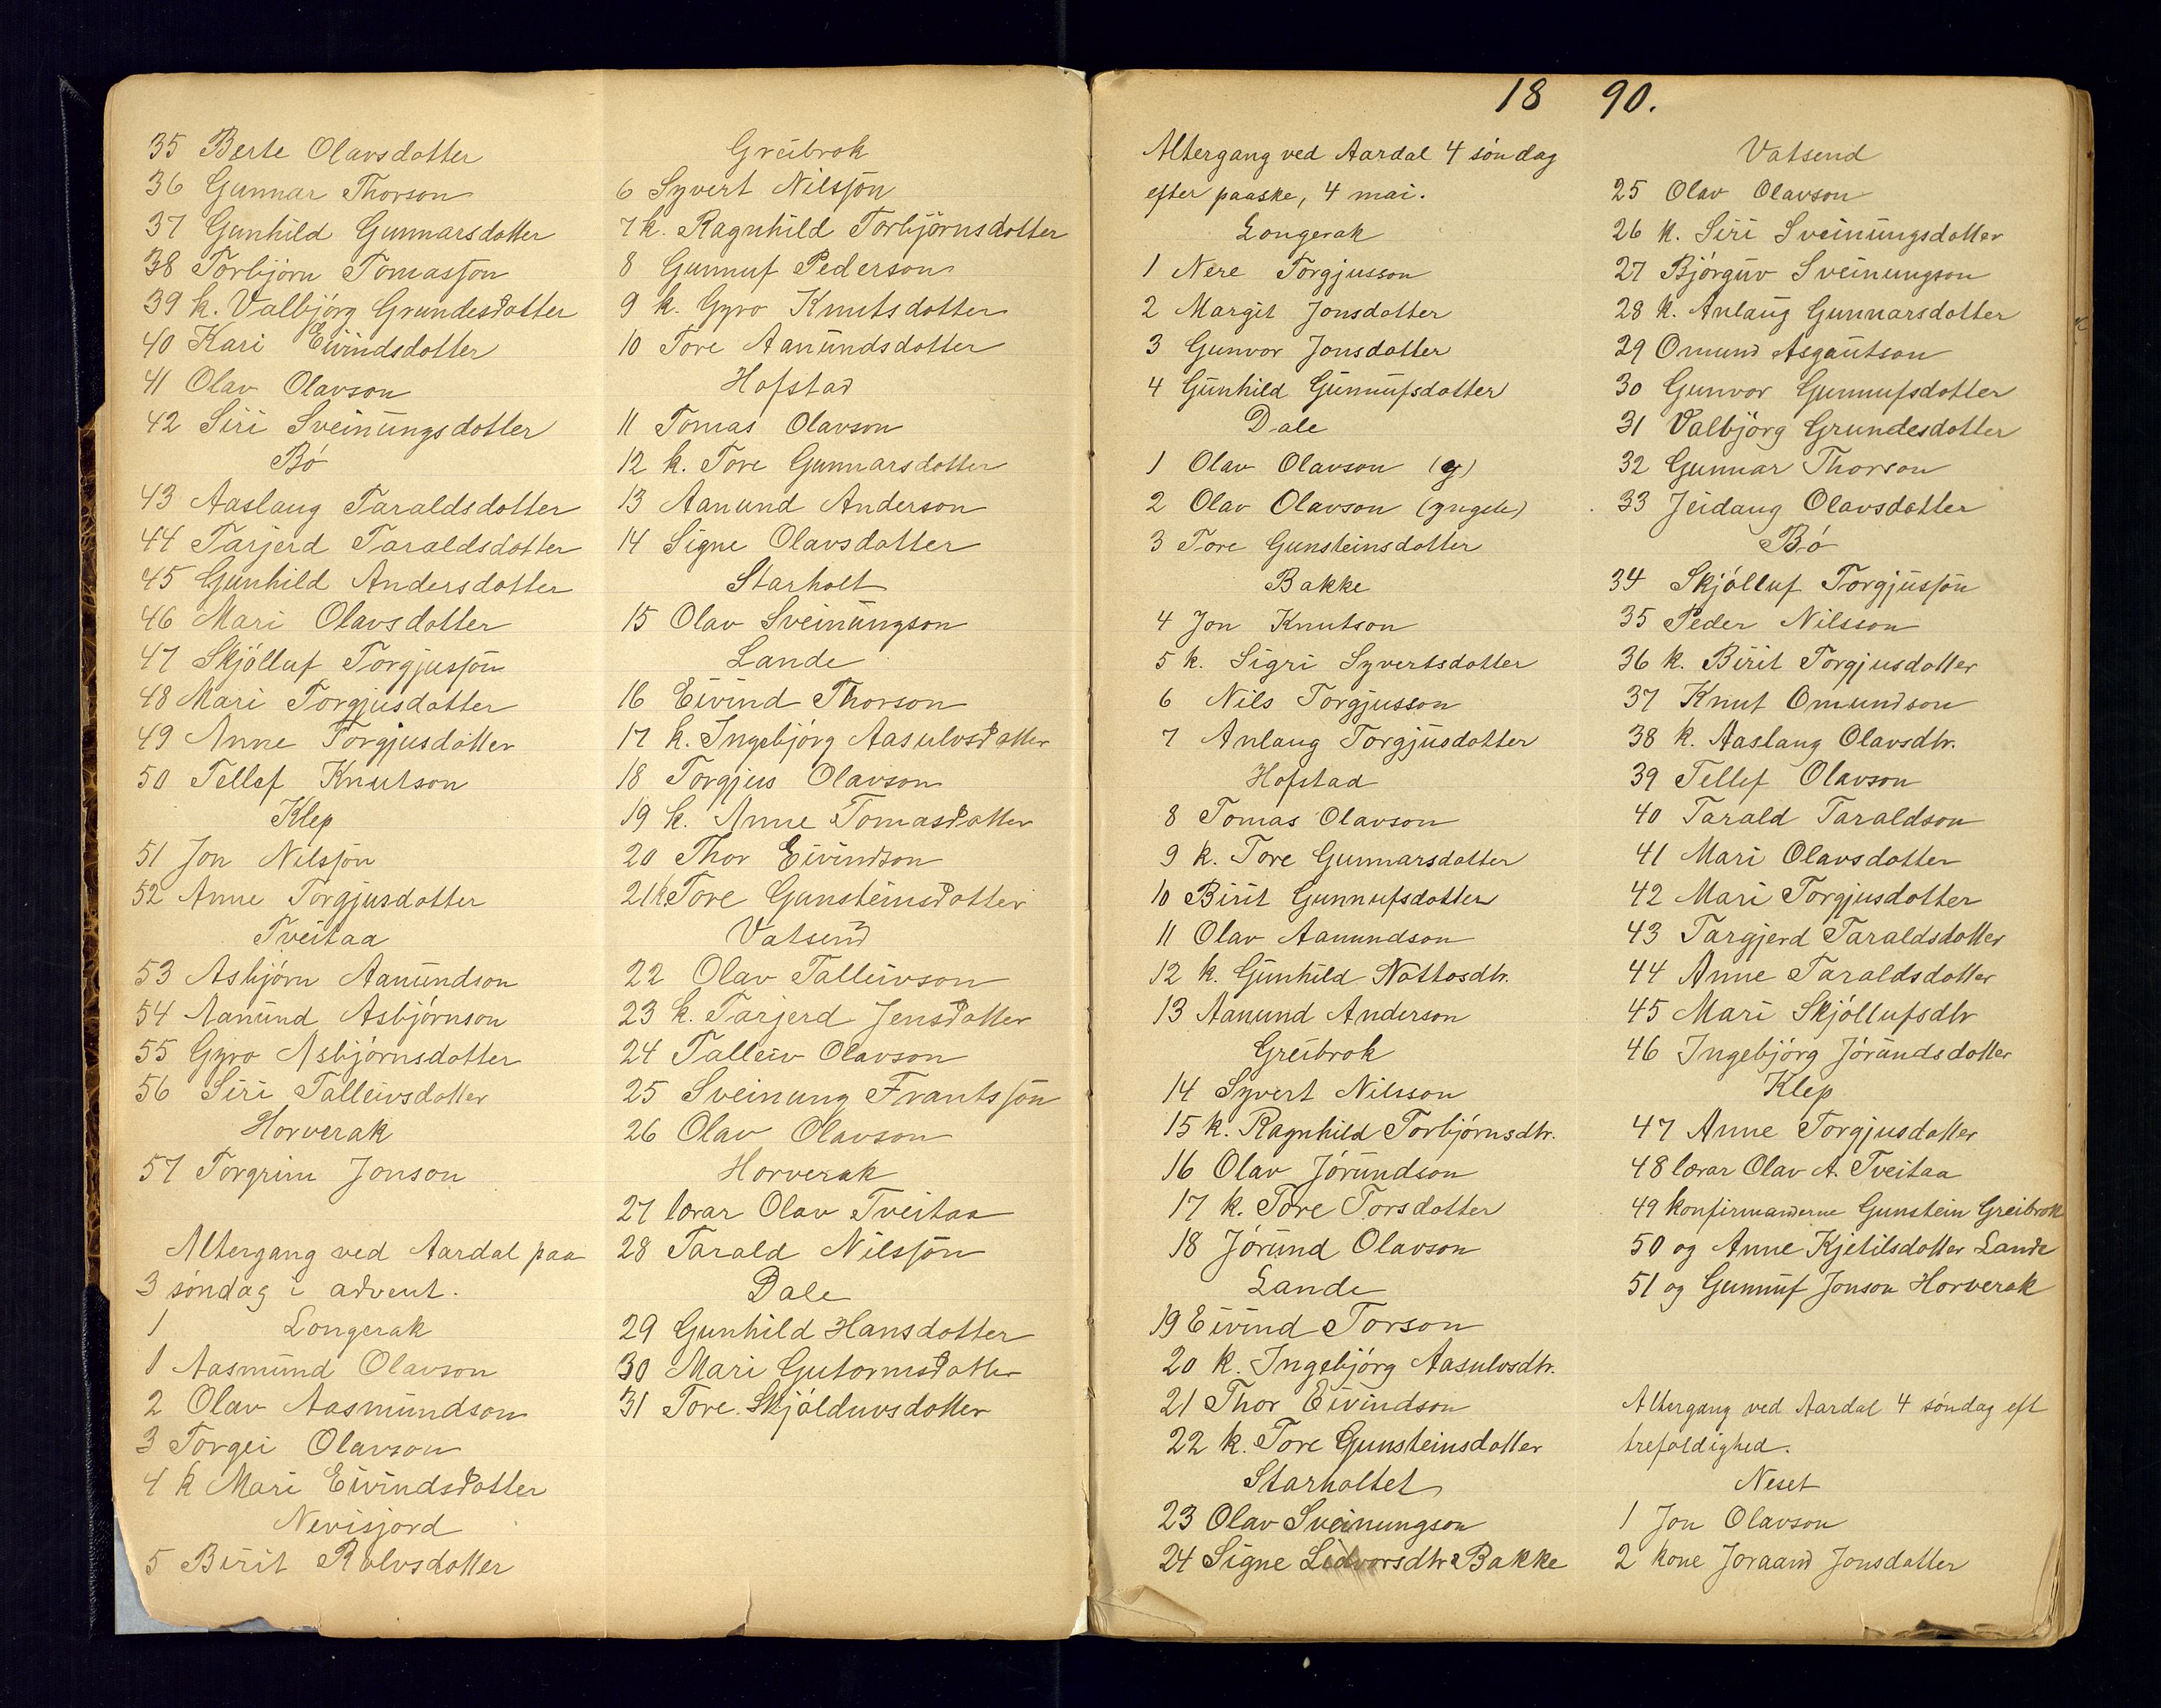 35 Berte Olavsdotter
36 Gunnar Thorson
37 Gunhild Gunnarsdotter
38 Torbjörn Tomasson
39 k. Valbjörg Grundesdotter
40 Kari Eivindsdotter
41 Olav Olavson
42 Siri Sveinungsdotter
Bö
43 Aaslaug Taraldsdotter
44 Tarjerd Taraldsdotter
45 Gunhild Andersdotter
46 Mari Olavsdotter
47 Skjölluf Torgjusson
48 Mari Torgjusdotter
49 Anne Torgjusdotter
50 Tellef Knutson
Klep
51 Jon Nilsson
52 Anne Torgjusdotter
Tveitaa
53 Asbjörn Aanundson
54 Aanund Asbjörnson
55 Gyro Asbjörnsdotter
56 Siri Talleivsdotter
Horverak
57 Torgrim Jonson
Altergang ved Aardal paa
3 söndag i advent.
1 Longerak
1 Aasmund Olavson
2 Olav Aasmundson
3 Torgei Olavson
4 k Mari Eivindsdotter
Nevisjord
5 Birit Rolvsdotter
Greibrok
6 Syvert Nilsson
7 k. Ragnhild Torbjörnsdotter
8 Gunnuf Pederson
9 k. Gyro Knutsdotter
10 Tore Aanundsdotter
Hofstad
11 Tomas Olavson
12 k. Tore Gunnarsdotter
13 Aanund Anderson
14 Signe Olavsdotter
Starholt
15 Olav Sveinungson
Lande
16 Eivind Thorson
17 k. Ingebjörg Aasulvsdotter
18 Torgjus Olavson
19 k. Anne Tomasdotter
20 Thor Eivindson
21 k Tore Gunsteinsdotter
Vatsend
22 Olav Talleivson
23 k. Tarjerd Jensdotter
24 Talleiv Olavson
25 Sveinung Frantsson
26 Olav Olavson
Horverak
27 lærar Olav Tveitaa
28 Tarald Nilsson
Dale
29 Gunhild Hansdotter
30 Mari Gutormsdotter
31 Tore Skjölduvsdotter
18 90.
Altergang ved Aardal 4 söndag
efter paaske, 4 mai.
Longerak
1 Nere Torgjusson
2 Margit Jonsdotter
3 Gunvor Jonsdotter
4 Gunhild Gunnufsdotter
Dale
1 Olav Olavson (g)
2 Olav Olavson (yngste)
3 Tore Gunsteinsdotter
Bakke
4 Jon Knutson
5 k. Sigri Syvertsdotter
6 Nils Torgjusson
7 Anlaug Torgjusdotter
Hofstad
8 Tomas Olavson
9 k. Tore Gunnarsdotter
10 Birit Gunnufsdotter
11 Olav Aanundson
12 k. Gunhild Nottosdtr.
13 Aanund Anderson
Greibrok
14 Syvert Nilsson
15 k. Ragnhild Torbjörnsdtr.
16 Olav Jörundson
17 k. Tore Torsdotter
18 Jörund Olavson
Lande
19 Eivind Torson
20 k. Ingebjörg Aasulvsdtr.
21 Thor Eivindson
22 k. Tore Gunsteinsdotter
Starholtet
23 Olav Sveinungson
24 Signe Bakke
Vatsend
25 Olav Olavson
26 k. Siri Sveinungsdotter
27 Björguv Sveinungson
28 k. Anlaug Gunnarsdotter
29 Omund Asgautson
30 Gunvor Gunnufsdotter
31 Valbjörg Grundesdotter
32 Gunnar Thorson
33 Jeidaug Olavsdotter
Bö
34 Skjölluf Torgjusson
35 Peder Nilsson
36 k. Birit Torgjusdotter
37 Knut Omundson
38 k. Aaslaug Olavsdtr.
39 Tellef Olavson
40 Tarald Taraldson
41 Mari Olavsdotter
42 Mari Torgjusdotter
43 Targjerd Taraldsdotter
44 Anne Taraldsdotter
45 Mari Skjöllufsdtr
46 Ingebjörg Jörundsdotter
Klep
47 Anne Torgjusdotter
48 lærar Olav A. Tveitaa
49 konfirmanderne Gunstein Greibrok
50 og Anne Kjetilsdotter Lande
51 og Gunnuf Jonson Horverak
Altergang ved Aardal 4 söndag eft
trefoldighed.
Neset
1 Jon Olavson
2 kone Joraand Jonsdotter